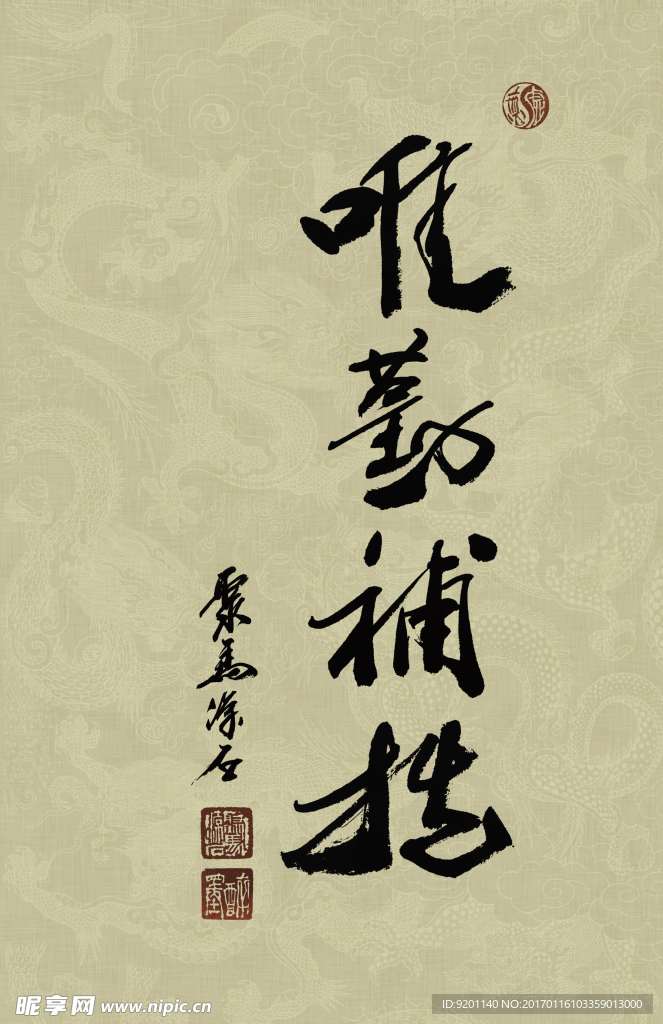 唯勤補拙
聚馬濠石
昵享网 www.nipic.cn
ID:9201140 NO:20170116103359013000